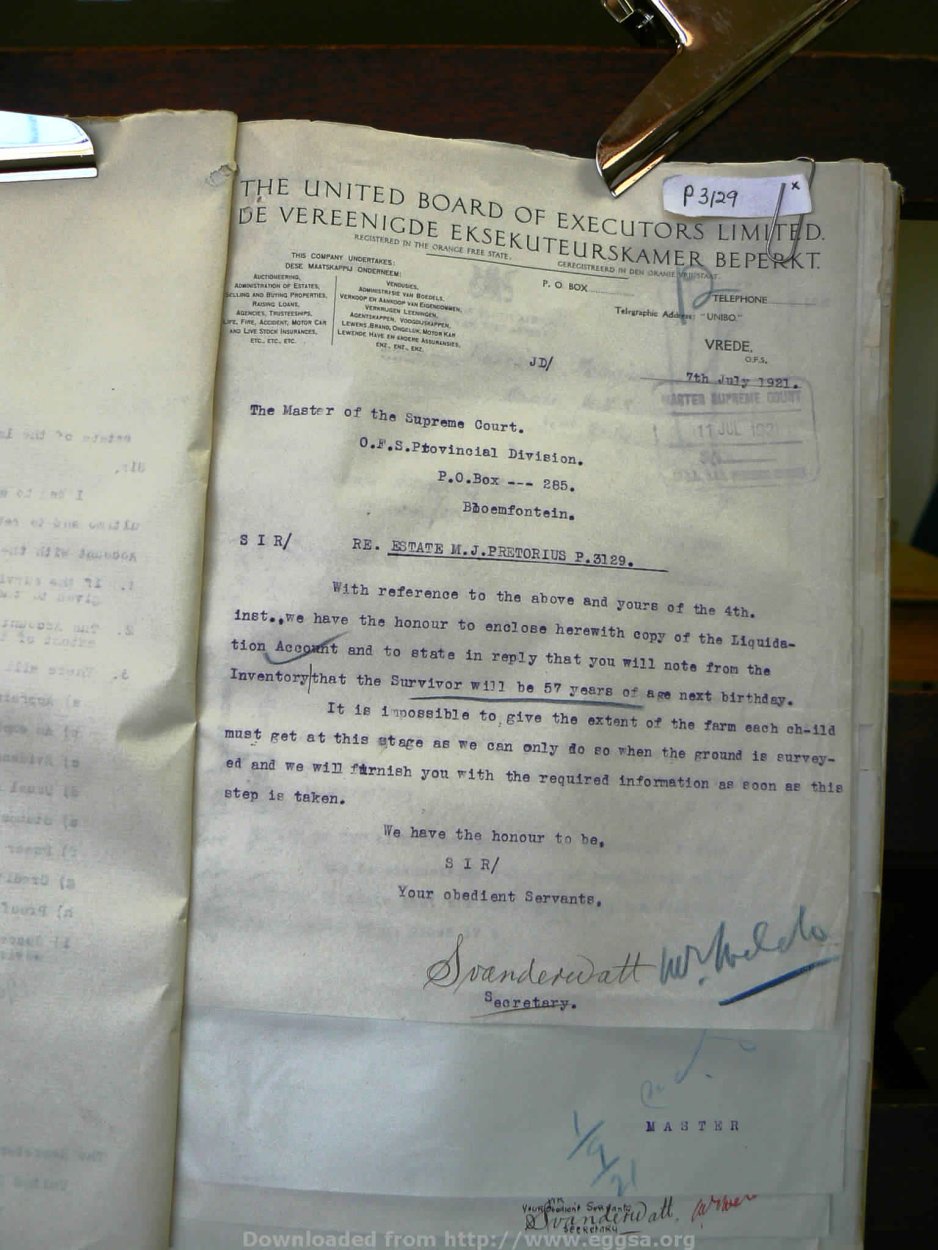 P 3129
THE UNITED BOARD OF EXECUTORS LIMITED.
DE VEREENIGDE EKSEKUTEURSKAMER BEPERKT.
REGISTERED IN THE ORANGE FREE STATE.
GEREGISTREERD IN DEN ORANJE VRIJSTAAT.
THIS COMPANY UNDERTAKES:
DESE MAATSKAPPIJ ONDERNEEM:
AUCTIONEERING,
ADMINISTRATION OF ESTATES,
SELLING AND BUYING PROPERTIES,
RAISING LOANS,
AGENCIES, TRUSTEESHIPS,
LIFE, FIRE, ACCIDENT, MOTOR CAR
AND LIVE STOCK INSURANCES,
ETC., ETC., ETC.
VENDUSIES,
ADMINISTRASIE VAN BOEDELS,
VERKOOP EN AANKOOP VAN EIGENDOMMEN,
VERKRIJGEN LEENINGEN,
AGENTSKAPPEN, VOOGDIJSKAPPEN,
LEWENS, BRAND, ONGELUK, MOTOR KAR
LEWENDE HAVE EN ANDERE ASSURANSIES,
ENZ., ENZ., ENZ.
P. O. BOX
TELEPHONE
Telegraphic Address: "UNIBO."
VREDE,
O.F.S.
JD/
7th July 1921.
MASTER SUPREME COURT
11 JUL 1921
The Master of the Supreme Court.
O.F.S.Provincial Division.
P.O.Box --- 285.
Bloemfontein.
S I R/
RE. ESTATE M.J.PRETORIUS P.3129.
With reference to the above and yours of the 4th.
inst.,we have the honour to enclose herewith copy of the Liquida-
tion Account and to state in reply that you will note from the
Inventory that the Survivor will be 57 years of age next birthday.
It is impossible to give the extent of the farm each ch-ild
must get at this stage as we can only do so when the ground is survey-
ed and we will furnish you with the required information as soon as this
step is taken.
We have the honour to be,
S I R/
Your obedient Servants,
Svanderwatt
Secretary.
MASTER
1/9/21
Your Obedient Servants
Svanderwatt.
SECRETARY
Downloaded from http://www.eggsa.org